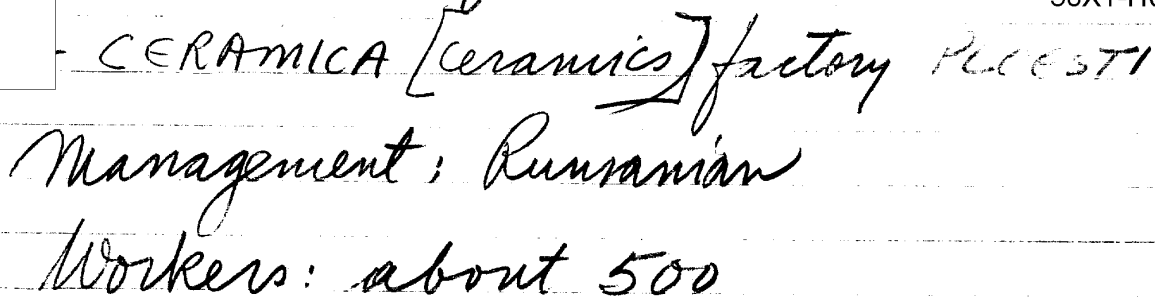 - CERAMICA [ceramics] factory PLOESTI
Management: Rumanian
Workers: about 500